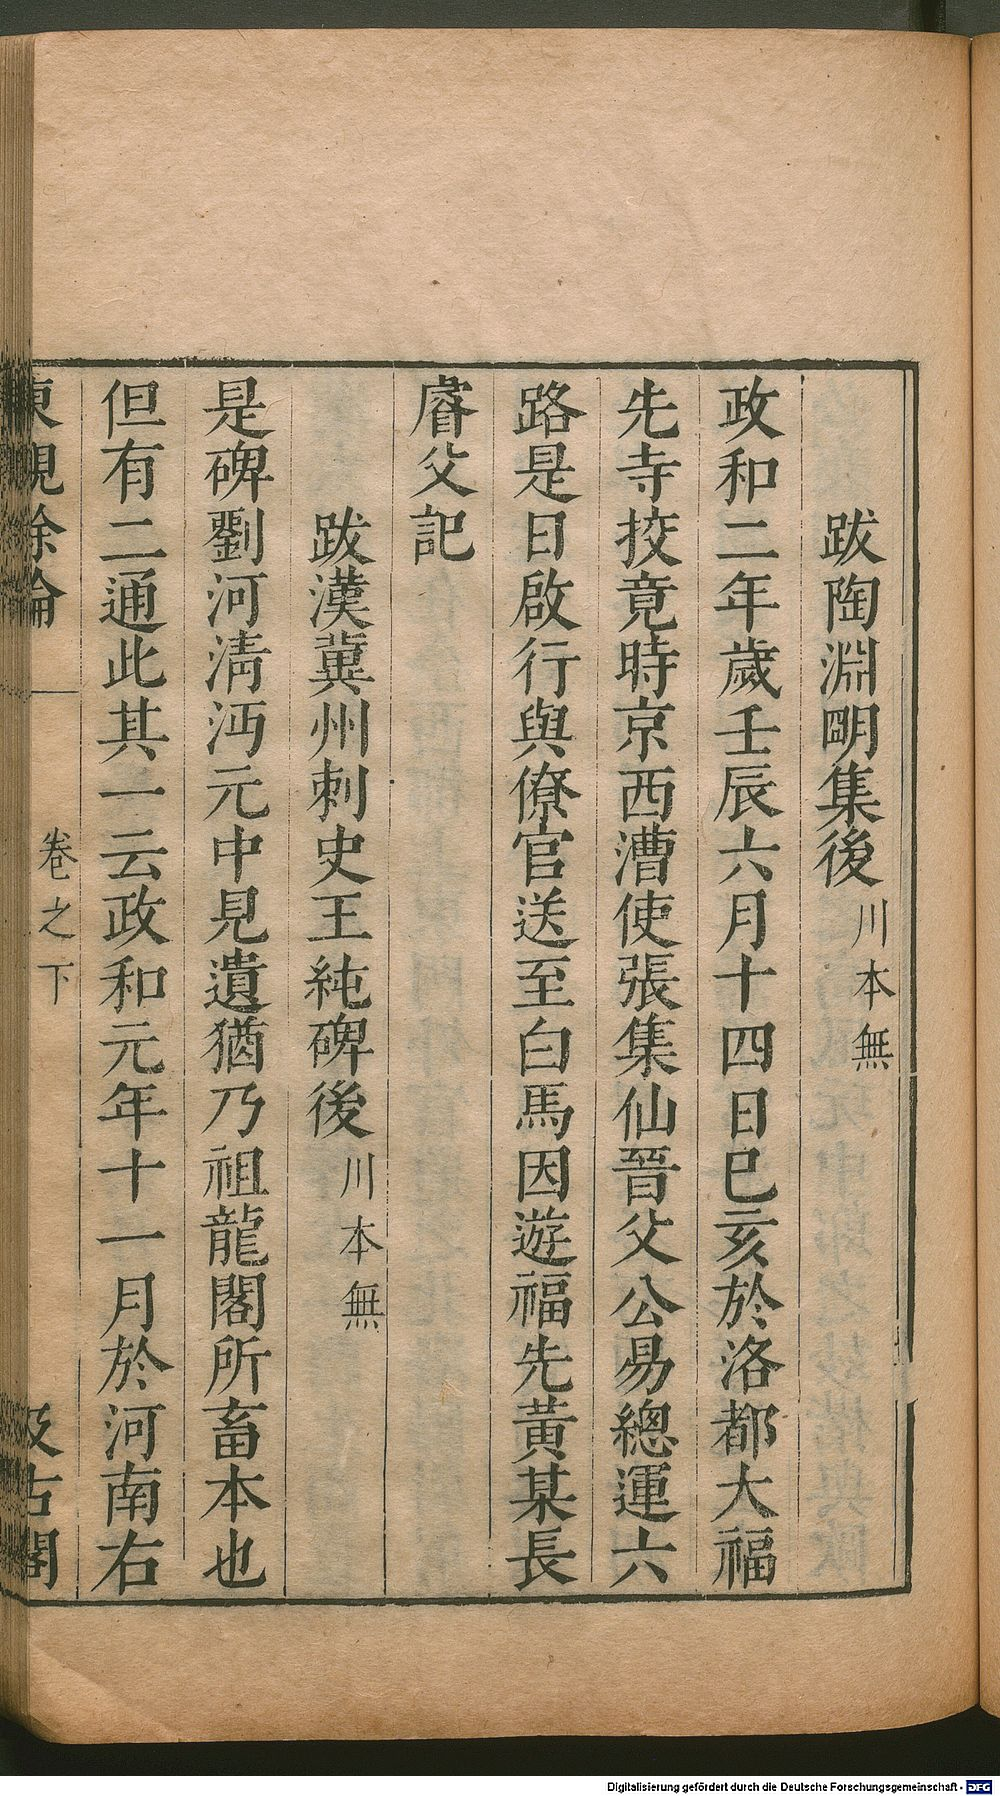 跋陶淵明集後川本無
政和二年歲壬辰六月十四日已亥於洛都大福
先寺挍竟時京西漕使張集仙晉父公易總運六
路是日啟行與僚官送至白馬因遊福先黃某長
睿父記
跋漢冀州刺史王純碑後川本無
是碑劉河淸沔元中見遺猶乃祖龍閣所畜本也
但有二通此其一云政和元年十一月於河南右
東觀餘論
卷之下
汲古閣
Digitalisierung gefördert durch die Deutsche Forschungsgemeinschaft - DFG